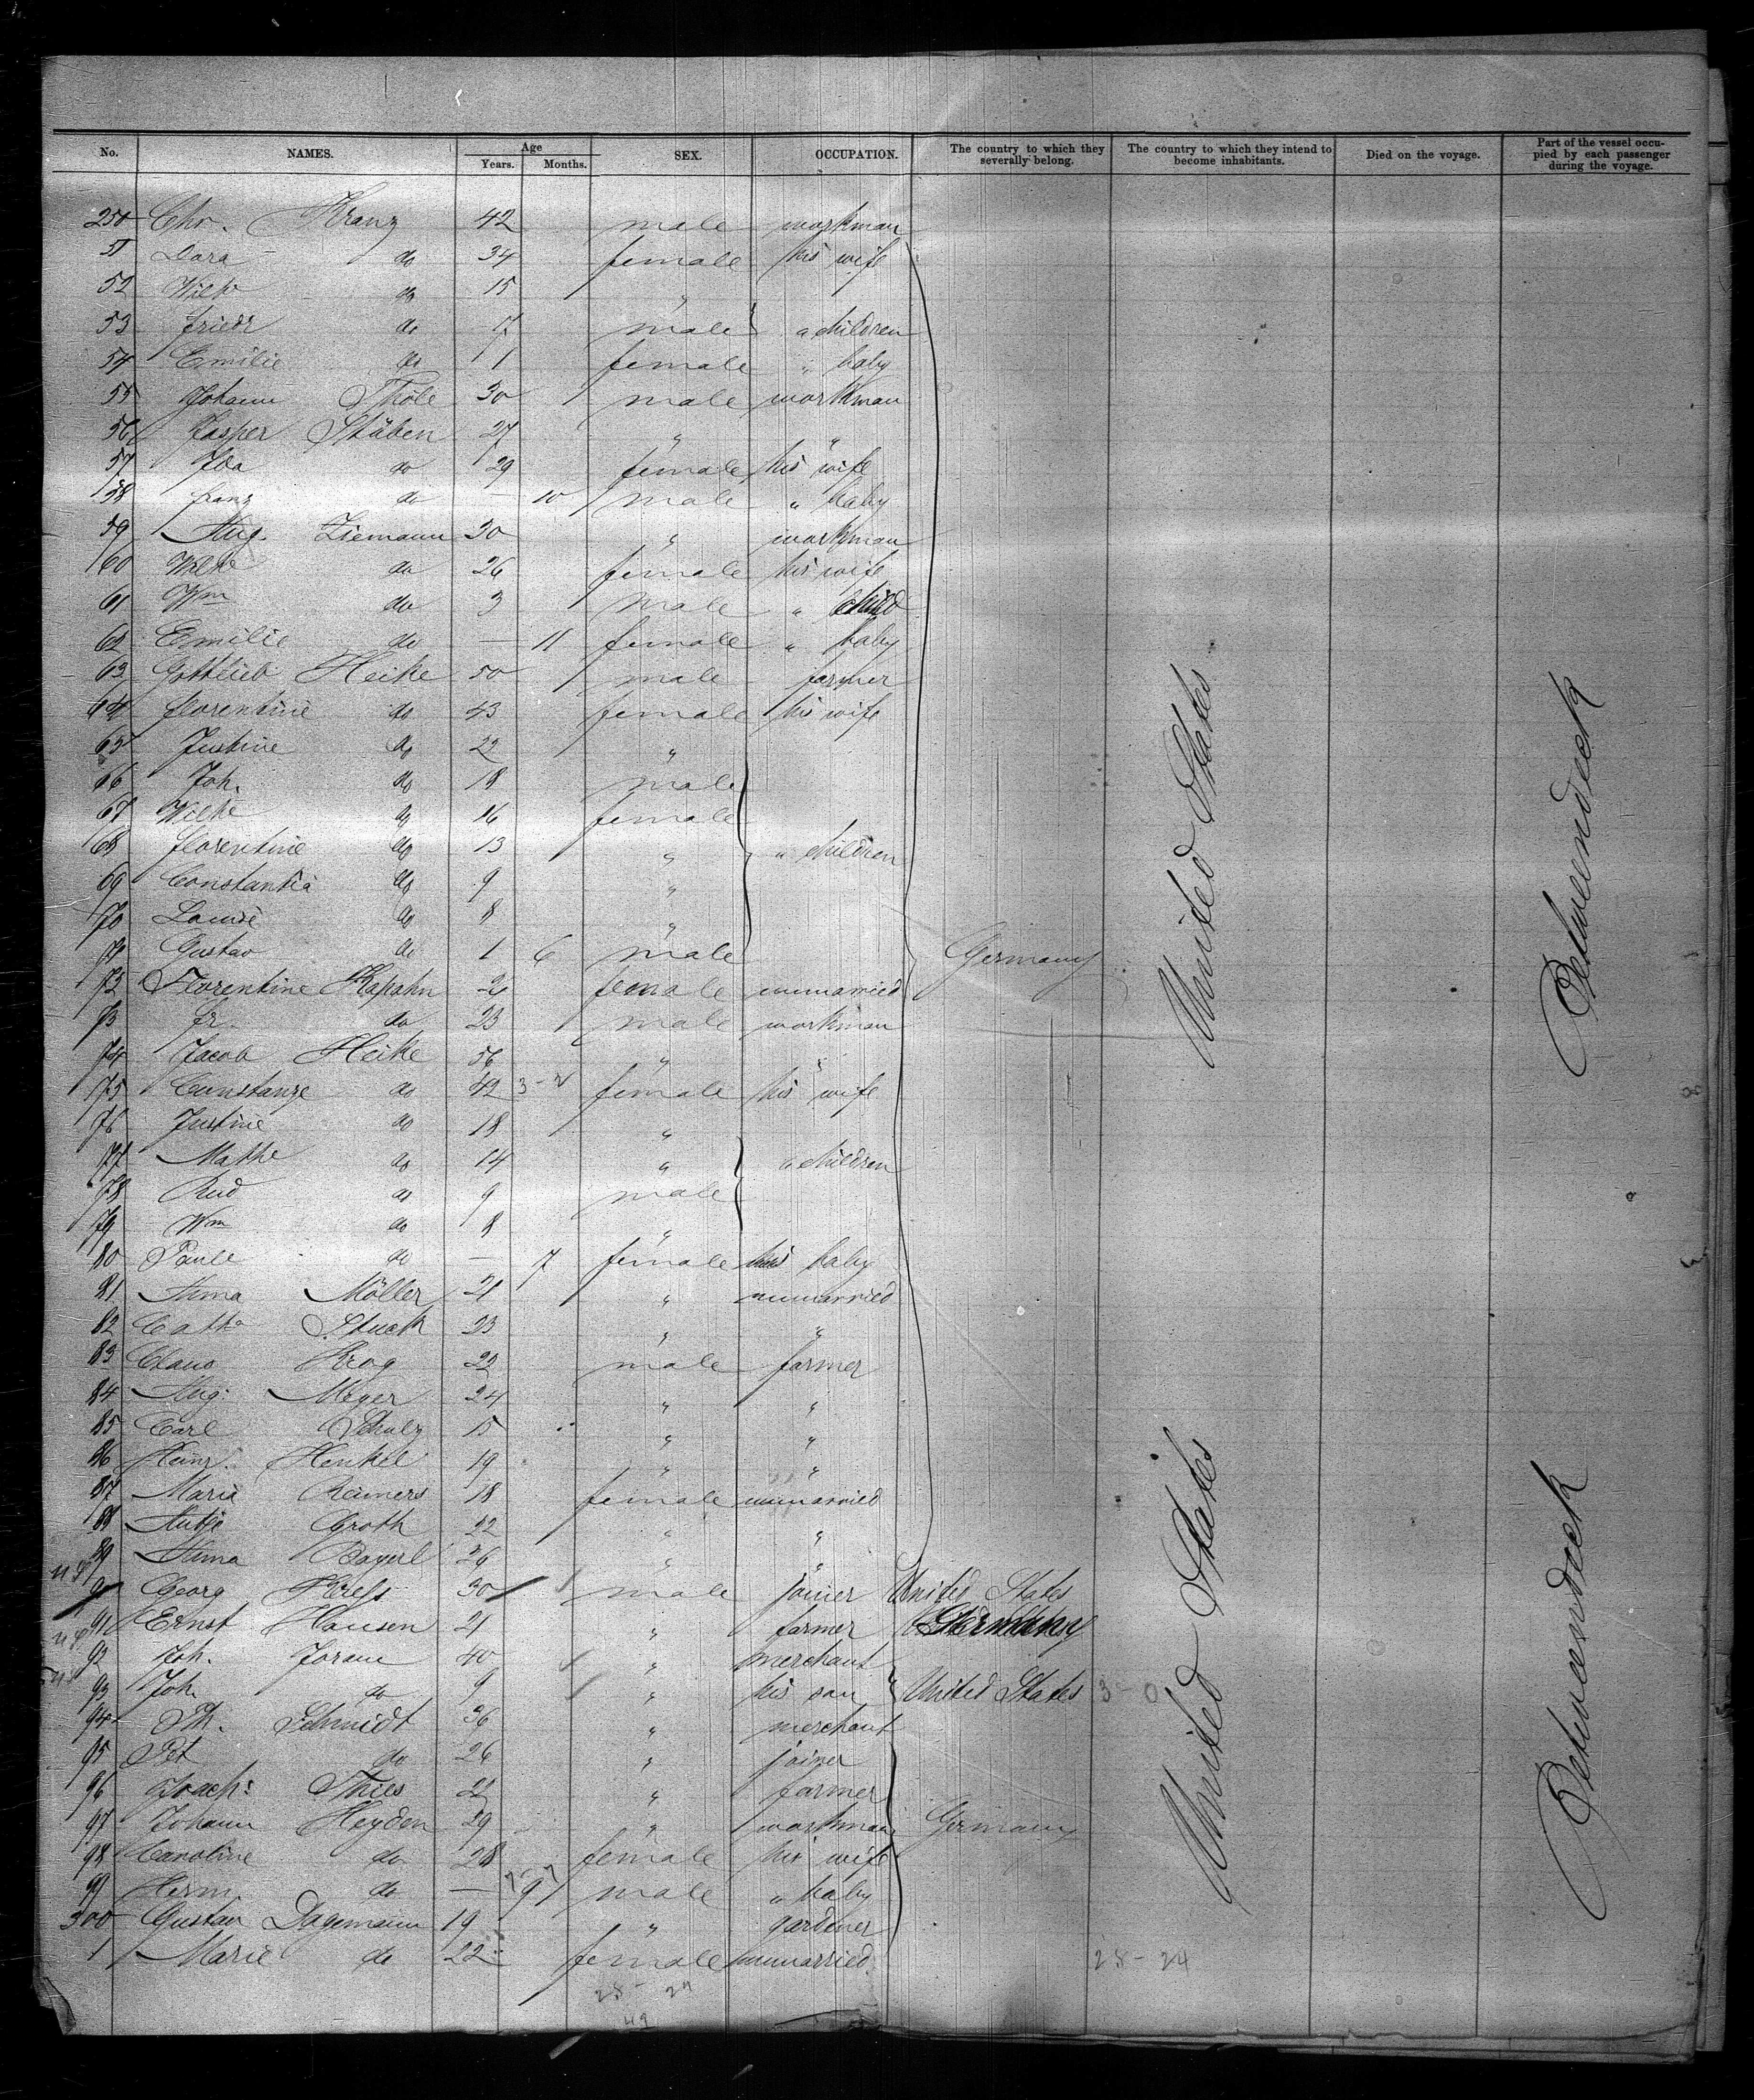 No. NAMES. Age Years. Months. SEX. OCCUPATION. The country to which they severally belong. The country to which they intend to become inhabitants. Died on the voyage. Part of the vessel occupied by each passenger during the voyage.
250 Chr. Kranz 42 male workman
51 Dora do 34 female his wife
52 Wilhe do 15 "
53 Friedr do 17 male " children
54 Emilie do 1 female " baby
55 Johann Thole 30 male workman
56 Jasper Stüben 27 " "
57 Ida do 29 female his wife
58 Franz do — 10 male " baby
59 Aug. Ziemann 30 " workman
60 Wilhe do 26 female his wife
61 Wm do 3 male " child
62 Emilie do — 11 female " baby
63 Gottlieb Heike 50 male farmer
64 Florentine do 43 female his wife
65 Justine do 22 "
66 Joh. do 18 male
67 Wilhe do 16 female
68 Florentine do 13 " " children
69 Constantia do 9 "
70 Louise do 8 "
71 Gustav do 1 6 male Germany
72 Florentine Kapahn 21 female unmarried
73 Fr. do 23 male workman
74 Jacob Heike 56 " "
75 Constanze do 42 female his wife
76 Justine do 18 "
77 Mathe do 14 " " children
78 Rud do 9 male
79 Wm do 8 "
80 Paule do — 7 female his baby
81 Anna Möller 21 " unmarried
82 Catha Stuck 23 " "
83 Claus Krog 22 male farmer
84 Aug. Meyer 24 " "
85 Carl Schulz 15 " "
86 Heinr. Henkel 19 " "
87 Marie Reimers 18 female unmarried
88 Antje Groth 22 " "
89 Anna Bayerl 26 " "
90 Georg Kress 30 male joiner United States
91 Ernst Hansen 21 " farmer Germany
92 Joh. 40 " merchant
93 Joh. do 9 " his son United States 3-0
94 Th. Schmidt 36 " merchant
95 Pet do 26 " joiner
96 Joach: Thies 22 " farmer
97 Johann Heyden 29 " workman Germany
98 Caroline do 28 female his wife
99 Herm. do — 9 male " baby
300 Gustav Dagemann 19 " gardener
1 Marie do 22 female unmarried 28-24
28-29
49
United States
United States
Betweendeck
Betweendeck